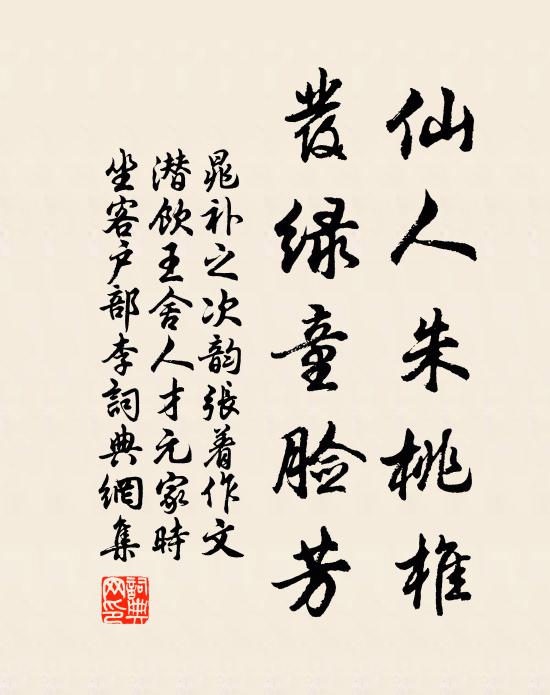 仙人朱桃椎
发绿童脸芳
晁补之次韵張着作文
潜飲王舍人才元家時
坐客户部李詞典網集
詞典网印